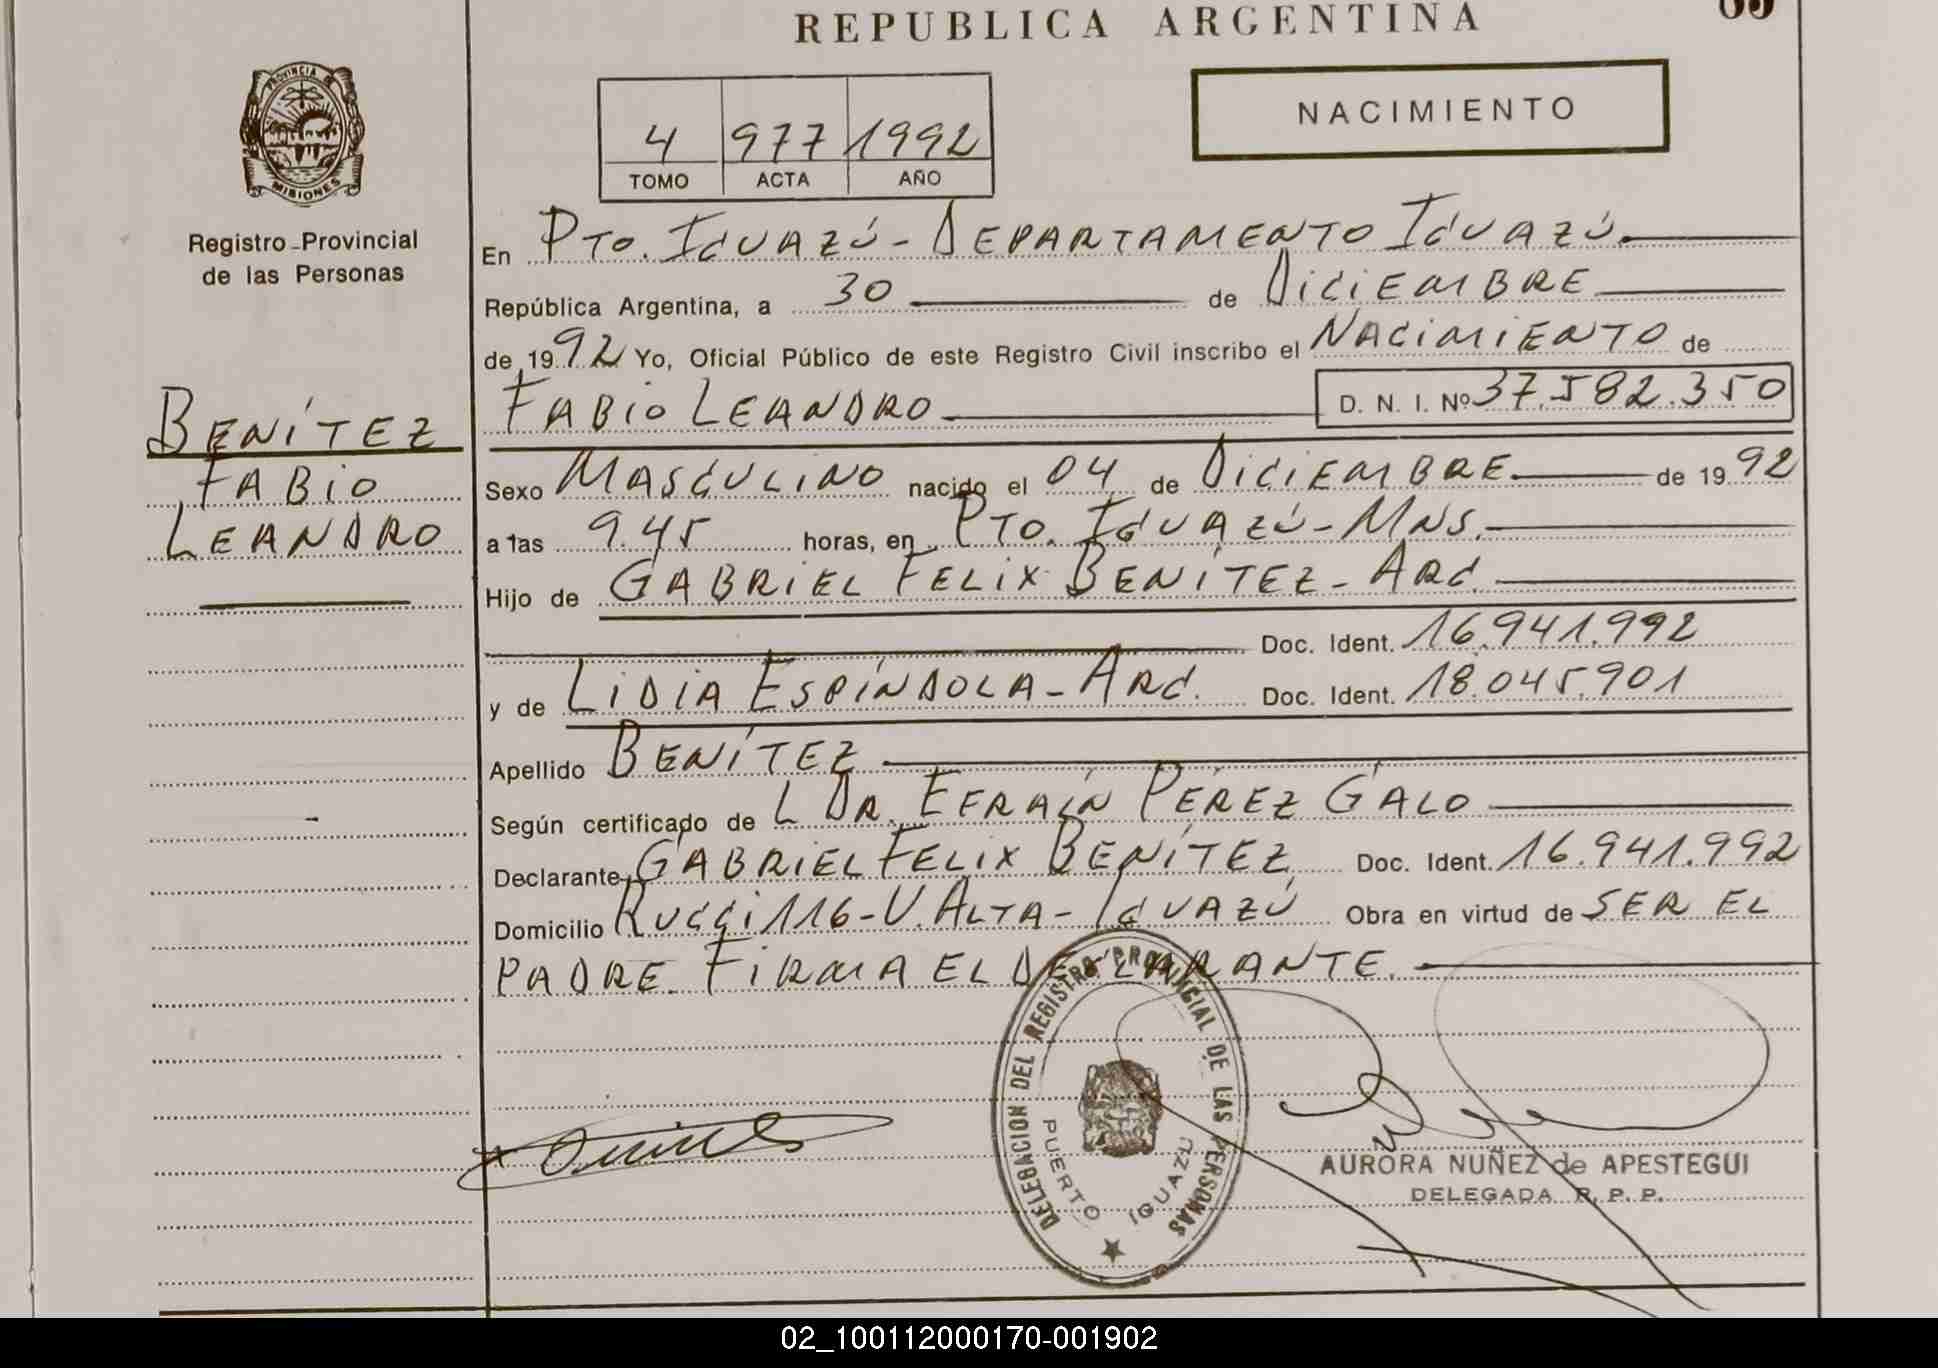 REPUBLICA ARGENTINA
PROVINCIA DE
MISIONES
Registro Provincial
de las Personas
BENÍTEZ
FABIO
LEANDRO
4 977 1992
TOMO ACTA AÑO
NACIMIENTO
En PTO. IGUAZÚ - DEPARTAMENTO IGUAZÚ.
República Argentina, a 30 de DICIEMBRE
de 1992 Yo, Oficial Público de este Registro Civil inscribo el NACIMIENTO de
FABIO LEANDRO D. N. I. Nº 37.582.350
Sexo MASCULINO nacido el 04 de DICIEMBRE. de 1992
a las 9.45 horas, en PTO. IGUAZÚ - MNS.
Hijo de GABRIEL FELIX BENÍTEZ - ARG.
Doc. Ident. 16.941.992
y de LIDIA ESPÍNDOLA - ARG. Doc. Ident. 18.045.901
Apellido BENÍTEZ
Según certificado de L DR. EFRAÍN PÉREZ GALO
Declarante GABRIEL FELIX BENÍTEZ Doc. Ident. 16.941.992
Domicilio RUCCI 116 - V. ALTA - IGUAZÚ Obra en virtud de SER EL
PADRE. FIRMA EL DECLARANTE.
DELEGACION DEL REGISTRO PROVINCIAL DE LAS PERSONAS
PUERTO IGUAZU
AURORA NUÑEZ de APESTEGUI
DELEGADA R. P. P.
02_100112000170-001902